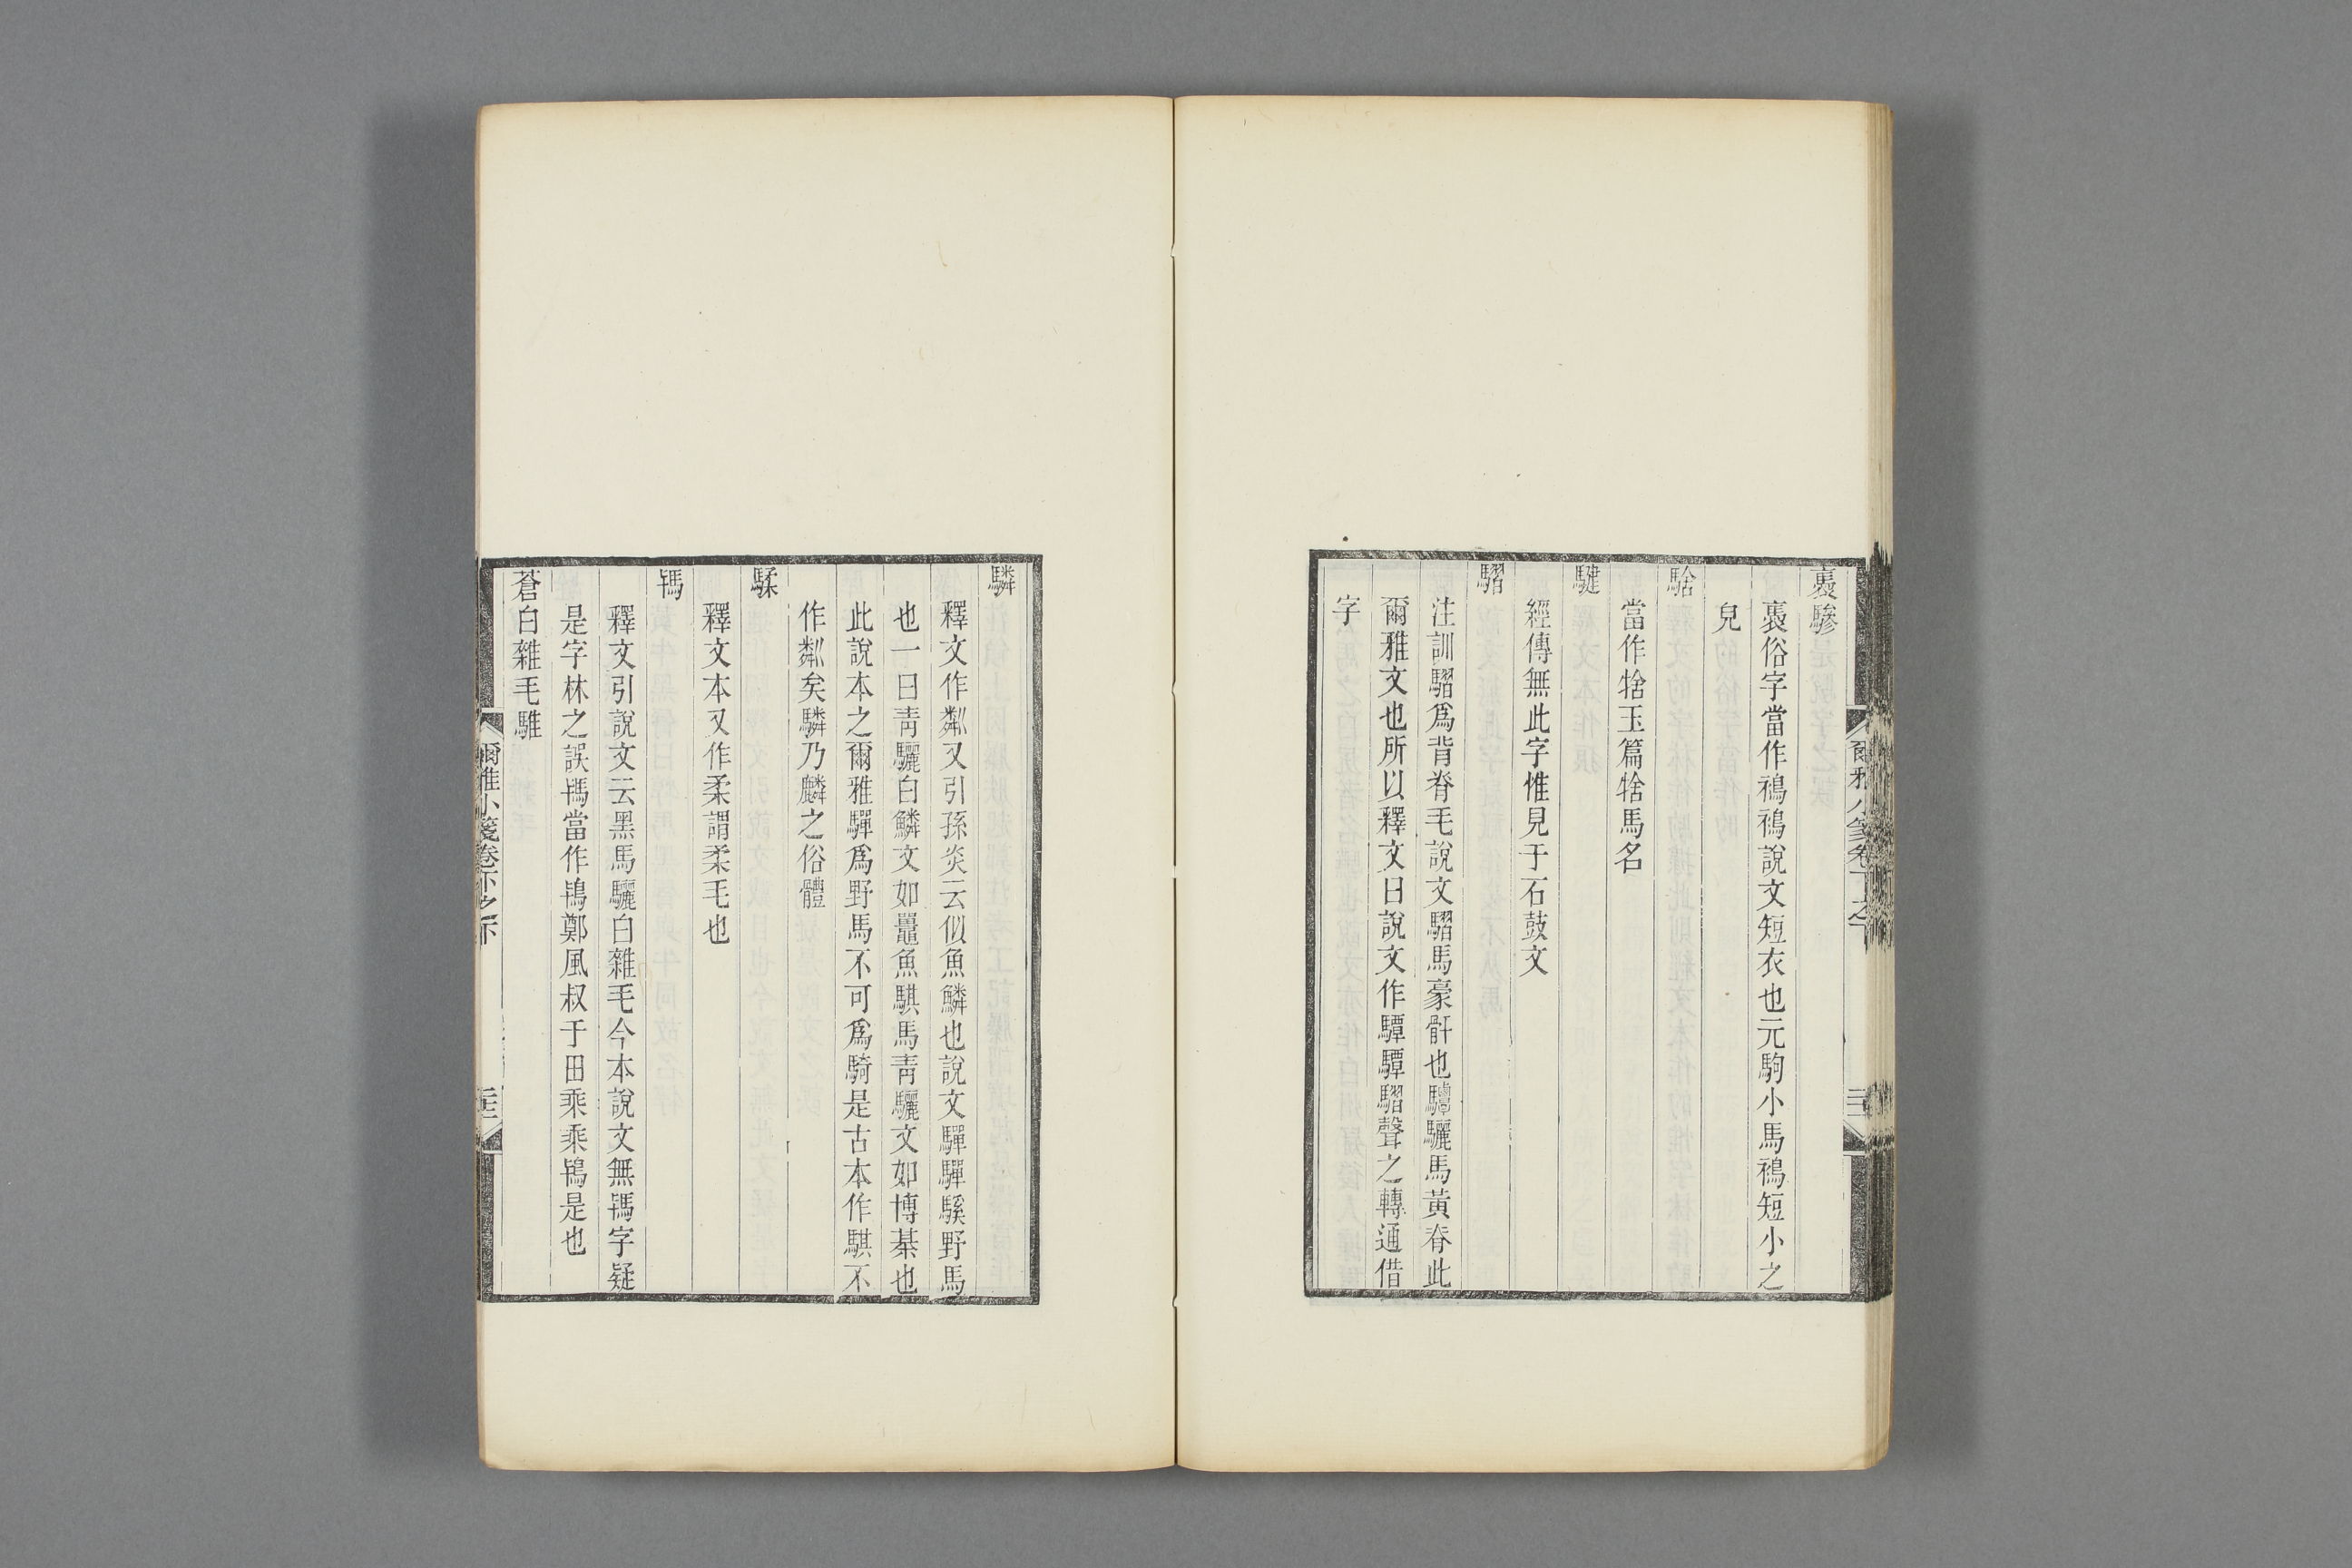 裊驂
裊俗字當作裊裊說文短衣也元駒小馬裊短小之
皃
䮚
當作𤙞玉篇𤙞馬名
騝
經傳無此字惟見于石鼓文
騽
注訓騽爲背脊毛說文騽馬豪骭也驔驪馬黃脊此
爾雅文也所以釋文曰說文作驔驔騽聲之轉通借
字
爾雅小箋卷下之下
驎
釋文作粼又引孫炎云似魚鱗也說文驒驒騱野馬
也一曰靑驪白鱗文如鼉魚騏馬靑驪文如博棊也
此說本之爾雅驒爲野馬不可爲騎是古本作騏不
作粼矣驎乃麟之俗體
騥
釋文本又作柔謂柔毛也
䮀
釋文引說文云黑馬驪白雜毛今本說文無䮀字疑
是字林之誤䮀當作鴇鄭風叔于田乘乘鴇是也
蒼白雜毛騅
爾雅小箋卷下之下